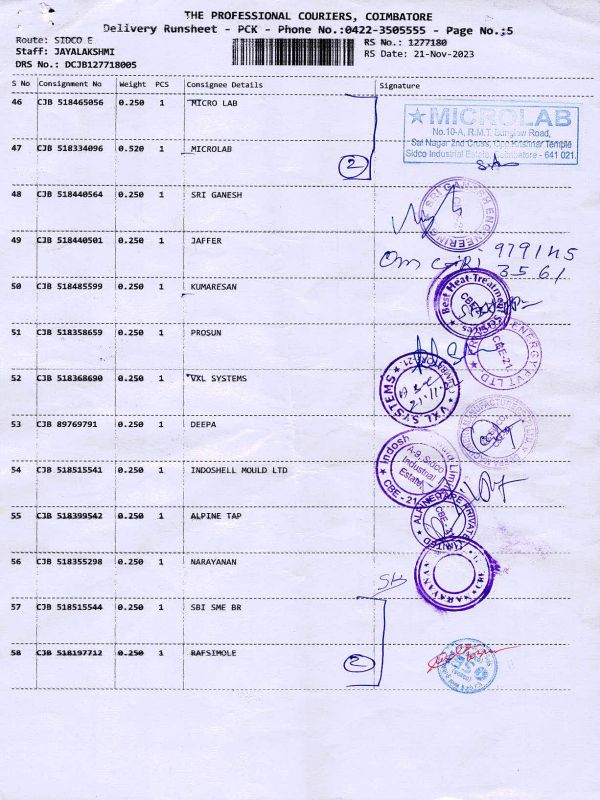 THE PROFESSIONAL COURIERS, COIMBATORE
Delivery Runsheet - PCK - Phone No.:0422-3505555 - Page No.:5
Route: SIDCO E
Staff: JAYALAKSHMI
DRS No.: DCJB127718005
RS No.: 1277180
RS Date: 21-Nov-2023
S No Consignment No Weight PCS Consignee Details Signature
46 CJB 518465056 0.250 1 MICRO LAB
47 CJB 518334096 0.520 1 MICROLAB
2
MICROLAB
No.10-A, R.M.T. Bunglow Road,
Sai Nagar 2nd Cross, Opp Krishnar Temple
Sidco Industrial Estate, Coimbatore - 641 021.
48 CJB 518440564 0.250 1 SRI GANESH
SRI GANESH ENGINEERING
49 CJB 518440501 0.250 1 JAFFER
50 CJB 518485599 0.250 1 KUMARESAN
Best Heat-Treatment
CBE
51 CJB 518358659 0.250 1 PROSUN
ENERGY PVT LTD
CBE-21
52 CJB 518368690 0.250 1 VXL SYSTEMS
VXL SYSTEMS
53 CJB 89769791 0.250 1 DEEPA
54 CJB 518515541 0.250 1 INDOSHELL MOULD LTD
A-9, Sidco
Industrial
Estate,
CBE - 21
55 CJB 518399542 0.250 1 ALPINE TAP
56 CJB 518355298 0.250 1 NARAYANAN
NARAYANAN
57 CJB 518515544 0.250 1 SBI SME BR
58 CJB 518197712 0.250 1 RAFSIMOLE
2